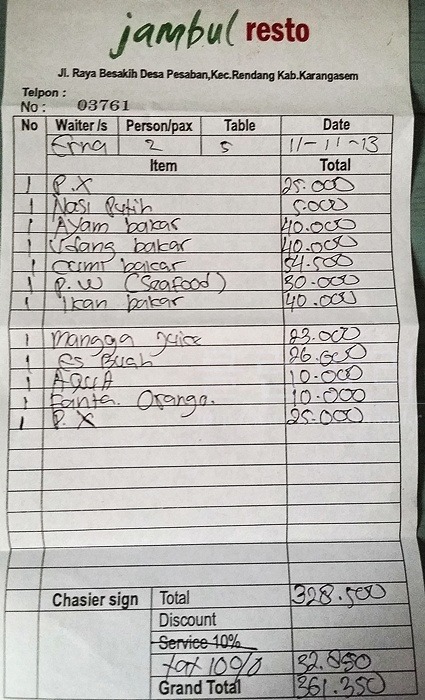 jambul resto
Jl. Raya Besakih Desa Pesaban,Kec.Rendang Kab.Karangasem
Telpon :
No : 03761
No Waiter/s Person/pax Table Date
Erna 2 5 11-11-13
Item Total
1 P.X 25.000
1 Nasi Putih 5.000
1 Ayam bakar 40.000
1 Udang bakar 40.000
1 Cumi bakar 54.500
1 P.W (Seafood) 30.000
1 Ikan bakar 40.000
1 Mangga Juice 23.000
1 Es Buah 26.000
1 AQUA 10.000
1 Fanta Orange. 10.000
1 P.X 25.000
Chasier sign Total 328.500
Discount
Service 10%
tax 10% 32.850
Grand Total 361.350